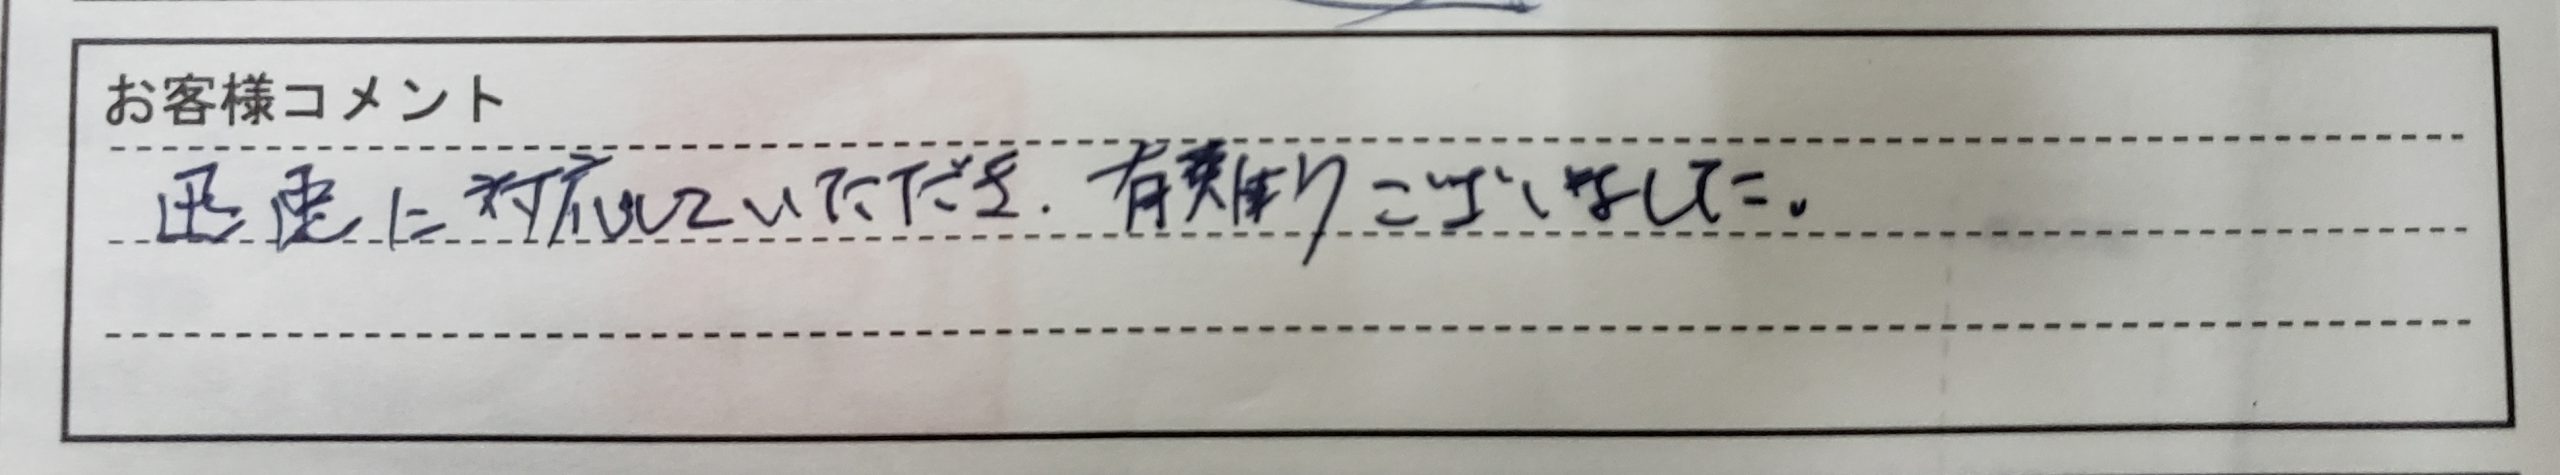 お客様コメント
迅速に対応していただき、有難うございました。